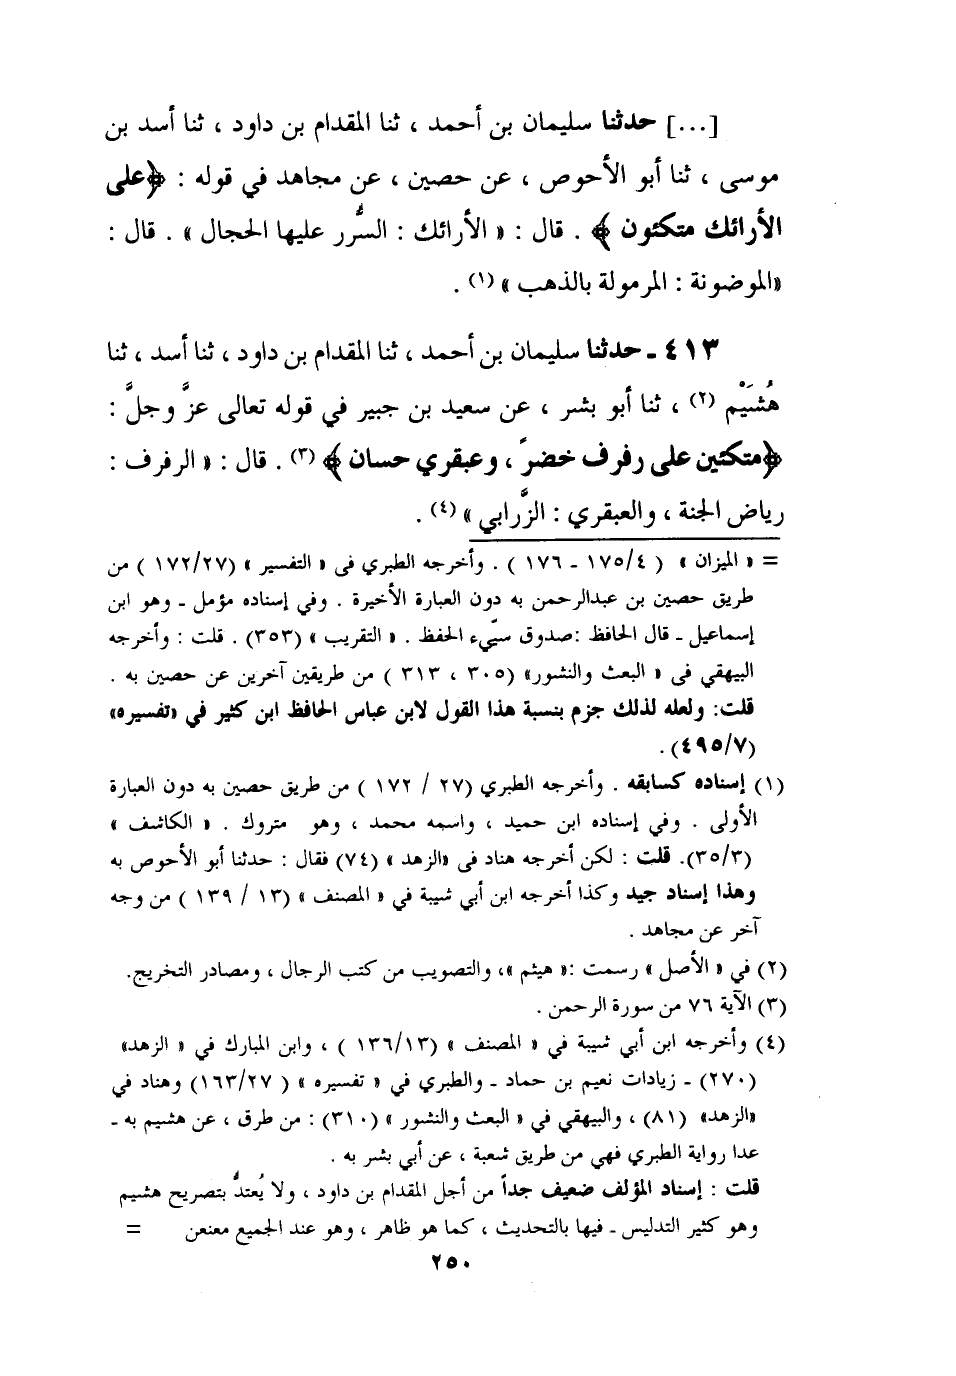 [...] حدثنا سليمان بن أحمد ، ثنا المقدام بن داود ، ثنا أسد بن
موسى ، ثنا أبو الأحوص ، عن حصين ، عن مجاهد في قوله : ﴿على
الأرائك متكئون﴾ . قال : « الأرائك : السُّرر عليها الحجال » . قال :
«الموضونة : المرمولة بالذهب » (١) .
٤١٣ ـ حدثنا سليمان بن أحمد ، ثنا المقدام بن داود ، ثنا أسد ، ثنا
هُشَيْم (٢) ، ثنا أبو بشر ، عن سعيد بن جبير في قوله تعالى عزَّ وجلَّ :
﴿متكئين على رفرف خضرٍ ، وعبقري حسان﴾ (٣) . قال : « الرفرف :
رياض الجنة ، والعبقري : الزَّرابي » (٤) .
= « الميزان » ( ٤/١٧٥ ـ ١٧٦ ) . وأخرجه الطبري فى « التفسير » (١٧٢/٢٧ ) من
طريق حصين بن عبدالرحمن به دون العبارة الأخيرة . وفي إسناده مؤمل ـ وهو ابن
إسماعيل ـ قال الحافظ :صدوق سيّيء الحفظ . « التقريب » (٣٥٣) . قلت : وأخرجه
البيهقي فى « البعث والنشور» (٣٠٥ ، ٣١٣ ) من طريقين آخرين عن حصين به .
قلت: ولعله لذلك جزم بنسبة هذا القول لابن عباس الحافظ ابن كثير في «تفسيره»
(٤٩٥/٧) .
(١) إسناده كسابقه . وأخرجه الطبري (٢٧ / ١٧٢ ) من طريق حصين به دون العبارة
الأولى . وفي إسناده ابن حميد ، واسمه محمد ، وهو متروك . « الكاشف »
(٣٥/٣). قلت : لكن أخرجه هناد فى «الزهد » (٧٤) فقال : حدثنا أبو الأحوص به
وهذا إسناد جيد وكذا أخرجه ابن أبي شيبة في « المصنف » (١٣ / ١٣٩ ) من وجه
آخر عن مجاهد .
(٢) في « الأصل » رسمت :« هيثم »، والتصويب من كتب الرجال ، ومصادر التخريج.
(٣) الآية ٧٦ من سورة الرحمن .
(٤) وأخرجه ابن أبي شيبة في « المصنف » (١٣٦/١٣ ) ، وابن المبارك في « الزهد»
(٢٧٠) ـ زيادات نعيم بن حماد ـ والطبري في « تفسيره » ( ١٦٣/٢٧) وهناد في
«الزهد» (٨١) ، والبيهقي في « البعث والنشور » (٣١٠) : من طرق ، عن هشيم به ـ
عدا رواية الطبري فهي من طريق شعبة ، عن أبي بشر به .
قلت : إسناد المؤلف ضعيف جداً من أجل المقدام بن داود ، ولا يُعتدُّ بتصريح هشيم
وهو كثير التدليس ـ فيها بالتحديث ، كما هو ظاهر ، وهو عند الجميع معنعن =
٢٥٠